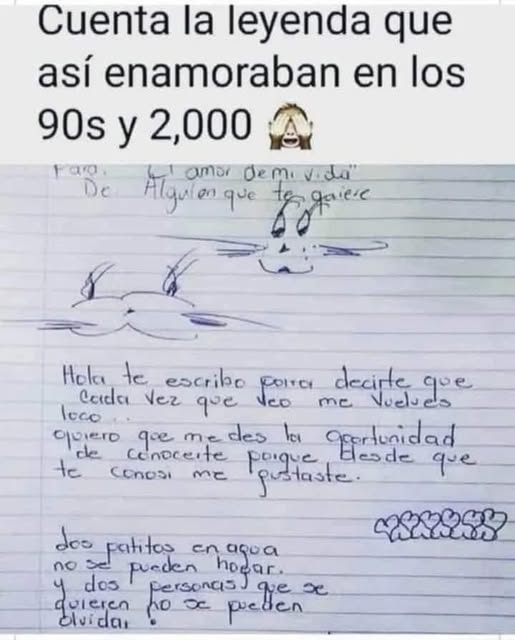 Cuenta la leyenda que
así enamoraban en los
90s y 2,000 🙈
Para. El amor de mi vida"
De Alguien que te quiere
Hola te escribo para decirte que
Cada Vez que veo me Vuelves
loco...
quiero que me des la oportunidad
de conocerte porque Desde que
te conosi me gustaste.
dos patitos en agua
no se pueden hogar.
y dos personas que se
quieren no se pueden
olvidar.